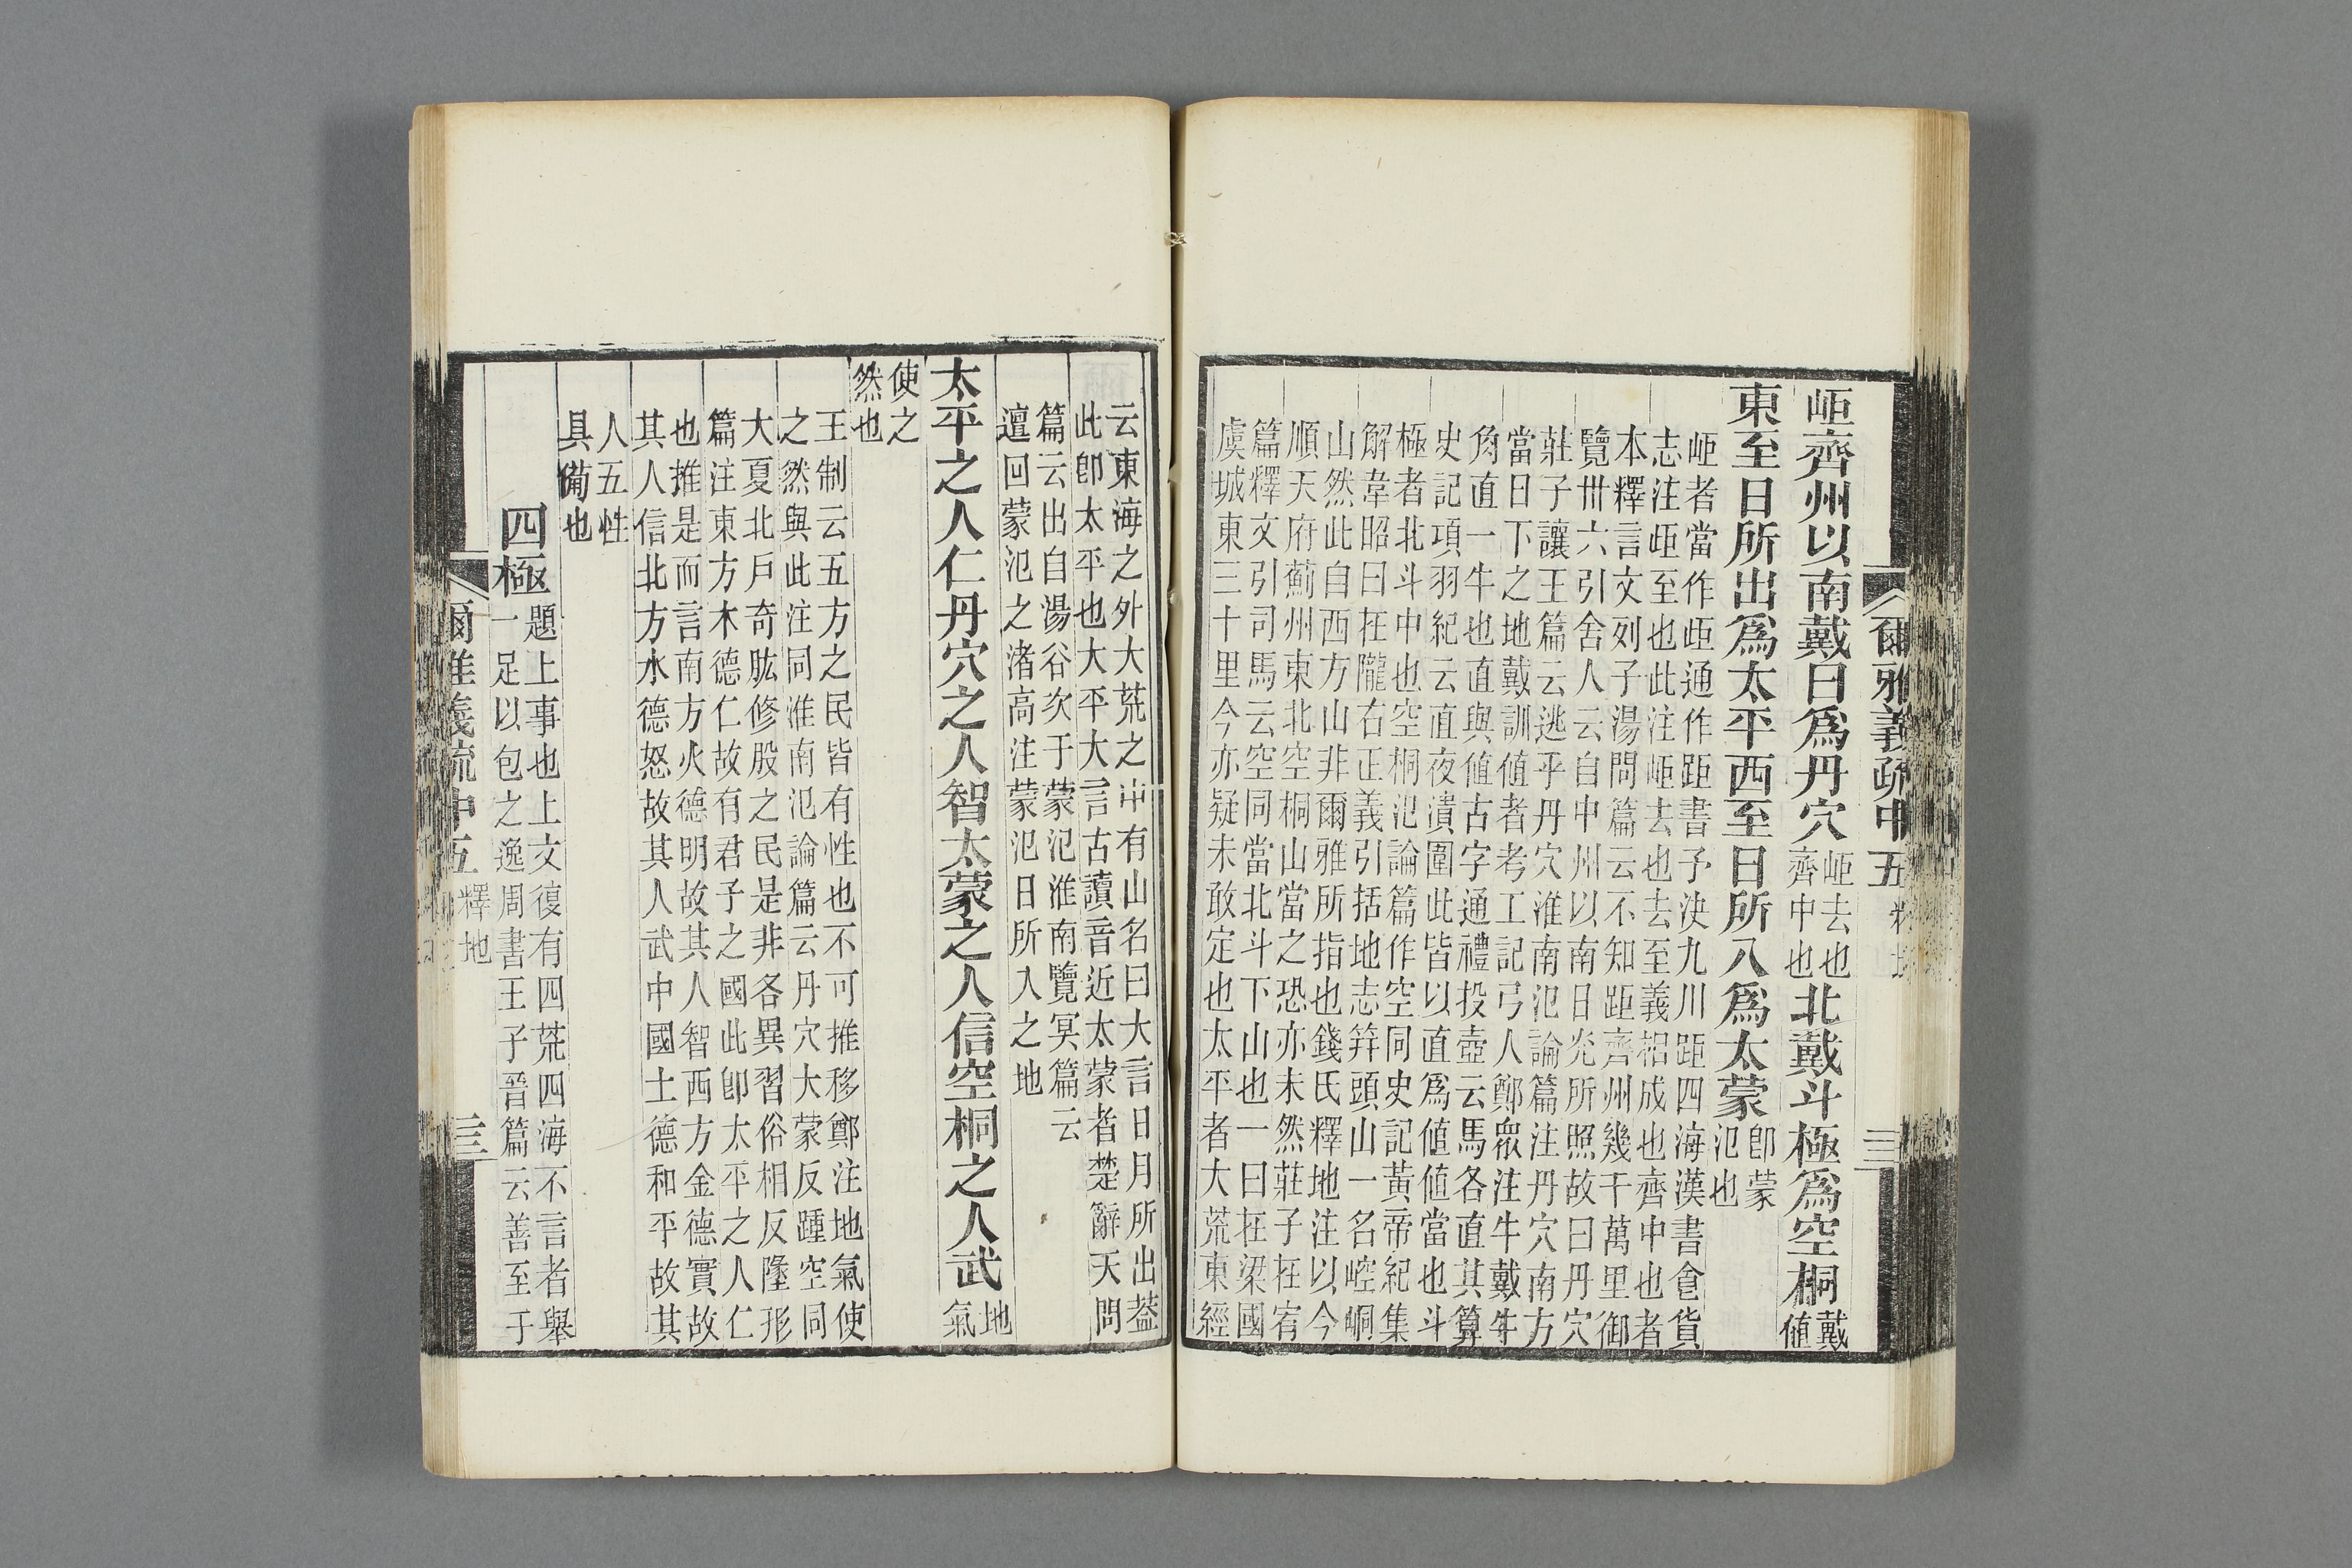 爾雅義疏中五
三
岠齊州以南戴日爲丹穴
岠去也
齊中也
北戴斗極爲空桐
戴
値
東至日所出爲太平西至日所入爲太蒙
卽蒙
汜也
岠者當作歫通作距書予決九川距四海漢書食貨
志注歫至也此注岠去也去至義相成也齊中也者
本釋言文列子湯問篇云不知距齊州幾千萬里御
覽卅六引舍人云自中州以南日光所照故曰丹穴
莊子讓王篇云逃乎丹穴淮南氾論篇注丹穴南方
當日下之地戴訓値者考工記弓人鄭衆注牛戴牛
角直一牛也直與値古字通禮投壺云馬各直其算
史記項羽紀云直夜潰圍此皆以直爲値値當也斗
極者北斗中也空桐氾論篇作空同史記黃帝紀集
解韋昭曰在隴右正義引括地志笄頭山一名崆峒
山然此自西方山非爾雅所指也錢氏釋地注以今
順天府薊州東北空桐山當之恐亦未然莊子在宥
篇釋文引司馬云空同當北斗下山也一曰在梁國
虞城東三十里今亦疑未敢定也太平者大荒東經
云東海之外大荒之中有山名曰大言日月所出葢
此卽太平也大平大言古讀音近太蒙者楚辭天問
篇云出自湯谷次于蒙汜淮南覽冥篇云
邅回蒙汜之渚高注蒙汜日所入之地
太平之人仁丹穴之人智太蒙之人信空桐之人武
地
氣
使之
然也
王制云五方之民皆有性也不可推移鄭注地氣使
之然與此注同淮南氾論篇云丹穴大蒙反踵空同
大夏北戶奇肱修股之民是非各異習俗相反墬形
篇注東方木德仁故有君子之國此卽太平之人仁
也推是而言南方火德明故其人智西方金德實故
其人信北方水德怒故其人武中國土德和平故其
人五性
具備也
四極
題上事也上文復有四荒四海不言者舉
一足以包之逸周書王子晉篇云善至于
爾雅義疏中五
釋地
三